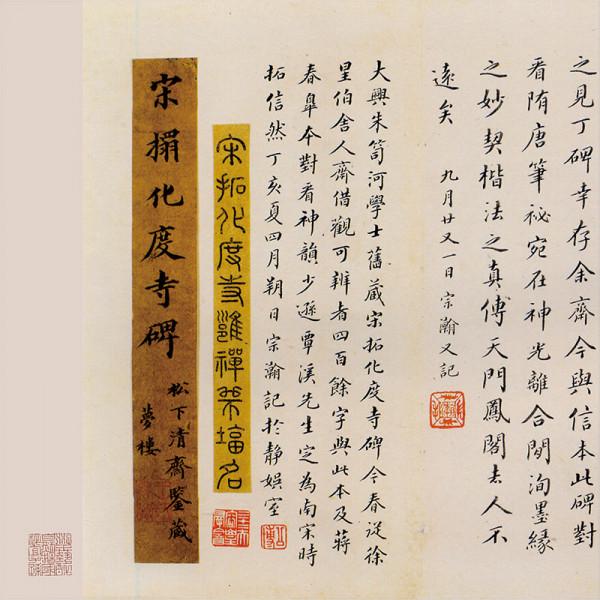 之見丁碑幸存余齋今與信本此碑對
看隋唐筆祕宛在神光離合間洵墨緣
之妙契楷法之真傳天門鳳閣去人不
遠矣 九月廿又一日宗瀚又記
大興朱笥河學士舊藏宋拓化度寺碑今春從徐
星伯舍人齋借觀可辨者四百餘字與此本及蔣
春皐本對看神韻少遜覃溪先生定為南宋時
拓信然丁亥夏四月朔日宗瀚記於靜娛室
宋拓化度寺邕禪師塔名
宋搨化度寺碑
松下清齋鑒藏
夢樓